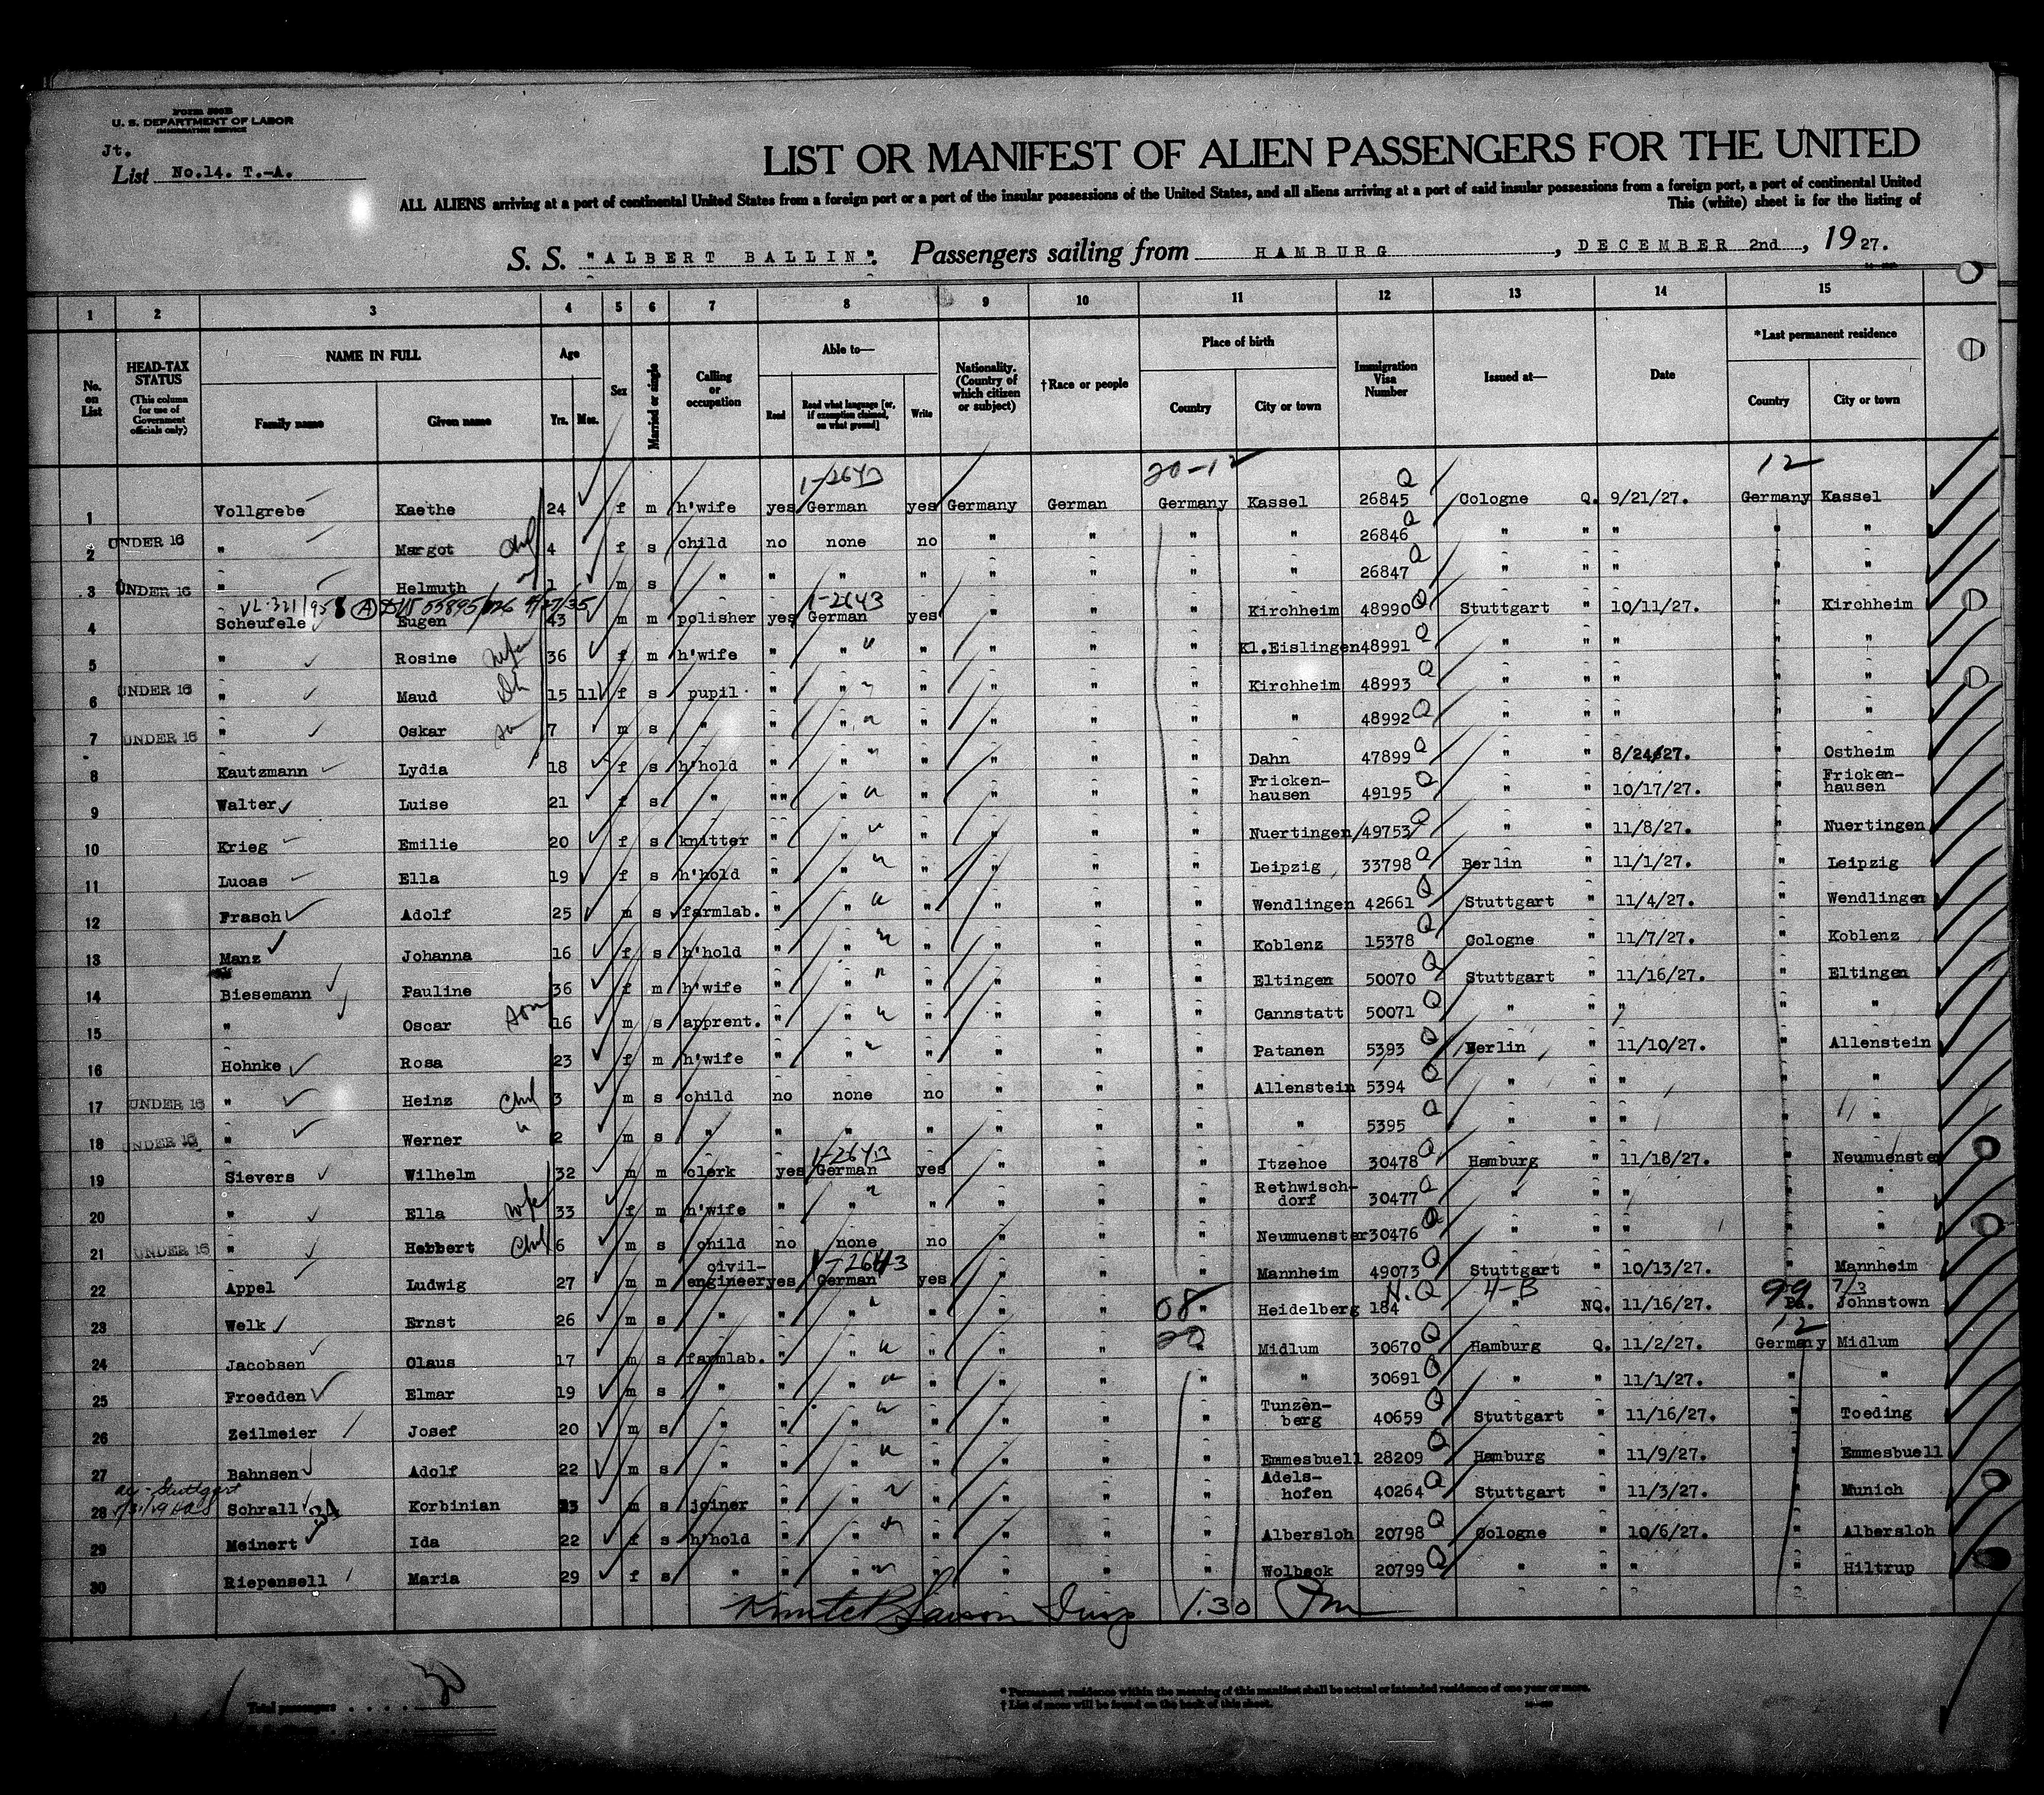 Form 500B
U. S. DEPARTMENT OF LABOR
IMMIGRATION SERVICE
Jt.
List No.14. T.-A.
LIST OR MANIFEST OF ALIEN PASSENGERS FOR THE UNITED
ALL ALIENS arriving at a port of continental United States from a foreign port or a port of the insular possessions of the United States, and all aliens arriving at a port of said insular possessions from a foreign port, a port of continental United
This (white) sheet is for the listing of
S. S. "ALBERT BALLIN". Passengers sailing from HAMBURG, DECEMBER 2nd, 1927.
1 2 3 4 5 6 7 8 9 10 11 12 13 14 15
No. on List
HEAD-TAX STATUS (This column for use of Government officials only)
NAME IN FULL Family name Given name
Age Yrs. Mos.
Sex
Married or single
Calling or occupation
Able to— Read Read what language [or, if exemption claimed, on what ground] Write
Nationality. (Country of which citizen or subject)
†Race or people
Place of birth Country City or town
Immigration Visa Number
Issued at—
Date
*Last permanent residence Country City or town
1-2643 20-12 12
1 Vollgrebe Kaethe 24 f m h'wife yes German yes Germany German Germany Kassel 26845 Q Cologne Q. 9/21/27. Germany Kassel
2 UNDER 16 " Margot 4 f s child no none no " " " " 26846 Q " " " " "
3 UNDER 16 " Helmuth 1 m s " " " " " " " " 26847 Q " " " " "
1-2643
4 Scheufele Eugen 43 m m polisher yes German yes " " " Kirchheim 48990 Q Stuttgart " 10/11/27. " Kirchheim
5 " Rosine wife 36 f m h'wife " " " " " " Kl.Eislingen 48991 Q " " " " "
6 UNDER 16 " Maud 15 11 f s pupil " " " " " " Kirchheim 48993 Q " " " " "
7 UNDER 16 " Oskar 7 m s " " " " " " " " 48992 Q " " " " "
8 Kautzmann Lydia 18 f s h'hold " " " " " " Dahn 47899 Q " " 8/24/27. " Ostheim
9 Walter Luise 21 f s " "" " " " " " Frickenhausen 49195 Q " " 10/17/27. " Frickenhausen
10 Krieg Emilie 20 f s knitter " " " " " " Nuertingen 49753 Q " " 11/8/27. " Nuertingen
11 Lucas Ella 19 f s h'hold " " " " " " Leipzig 33798 Q Berlin " 11/1/27. " Leipzig
12 Frasch Adolf 25 m s farmlab. " " " " " " Wendlingen 42661 Q Stuttgart " 11/4/27. " Wendlingen
13 Manz Johanna 16 f s h'hold " " " " " " Koblenz 15378 Q Cologne " 11/7/27. " Koblenz
14 Biesemann Pauline 36 f m h'wife " " " " " " Eltingen 50070 Q Stuttgart " 11/16/27. " Eltingen
15 " Oscar son 16 m s apprent. " " " " " " Cannstatt 50071 Q " " " " "
16 Hohnke Rosa 23 f m h'wife " " " " " " Patanen 5393 Q Berlin " 11/10/27. " Allenstein
17 UNDER 16 " Heinz Chil 3 m s child no none no " " " Allenstein 5394 Q " " " " "
18 UNDER 16 " Werner " 2 m s " " " " " " " " 5395 Q " " " " "
1-2643
19 Sievers Wilhelm 32 m m clerk yes German yes " " " Itzehoe 30478 Q Hamburg " 11/18/27. " Neumuenster
20 " Ella wife 33 f m h'wife " " " " " " Rethwischdorf 30477 Q " " " " "
21 UNDER 16 " Hebbert Chil 6 m s child no none no " " " Neumuenster 30476 Q " " " " "
1-2643
22 Appel Ludwig 27 m m civil-engineer yes German yes " " " Mannheim 49073 Q Stuttgart " 10/13/27. " Mannheim
N.Q 4-B 99 7/3
23 Welk Ernst 26 m s " " " " " " 08 " Heidelberg 184 " NQ. 11/16/27. Pa. Johnstown
20 12
24 Jacobsen Olaus 17 m s farmlab. " " " " " " Midlum 30670 Q Hamburg Q. 11/2/27. Germany Midlum
25 Froedden Elmar 19 m s " " " " " " " " 30691 Q " " 11/1/27. " "
26 Zeilmeier Josef 20 m s " " " " " " " Tunzenberg 40659 Q Stuttgart " 11/16/27. " Toeding
27 Bahnsen Adolf 22 m s " " " " " " " Emmesbuell 28209 Q Hamburg " 11/9/27. " Emmesbuell
28 Schrall Korbinian 23 m s joiner " " " " " " Adelshofen 40264 Q Stuttgart " 11/3/27. " Munich
29 Meinert Ida 22 f s h'hold " " " " " " Albersloh 20798 Q Cologne " 10/6/27. " Albersloh
30 Riepensell Maria 29 f s " " " " " " " Wolbeck 20799 Q " " " " Hiltrup
Insp 1.30 Pm
Total passengers . . . . 30
* Permanent residence within the meaning of this manifest shall be actual or intended residence of one year or more.
† List of races will be found on the back of this sheet.